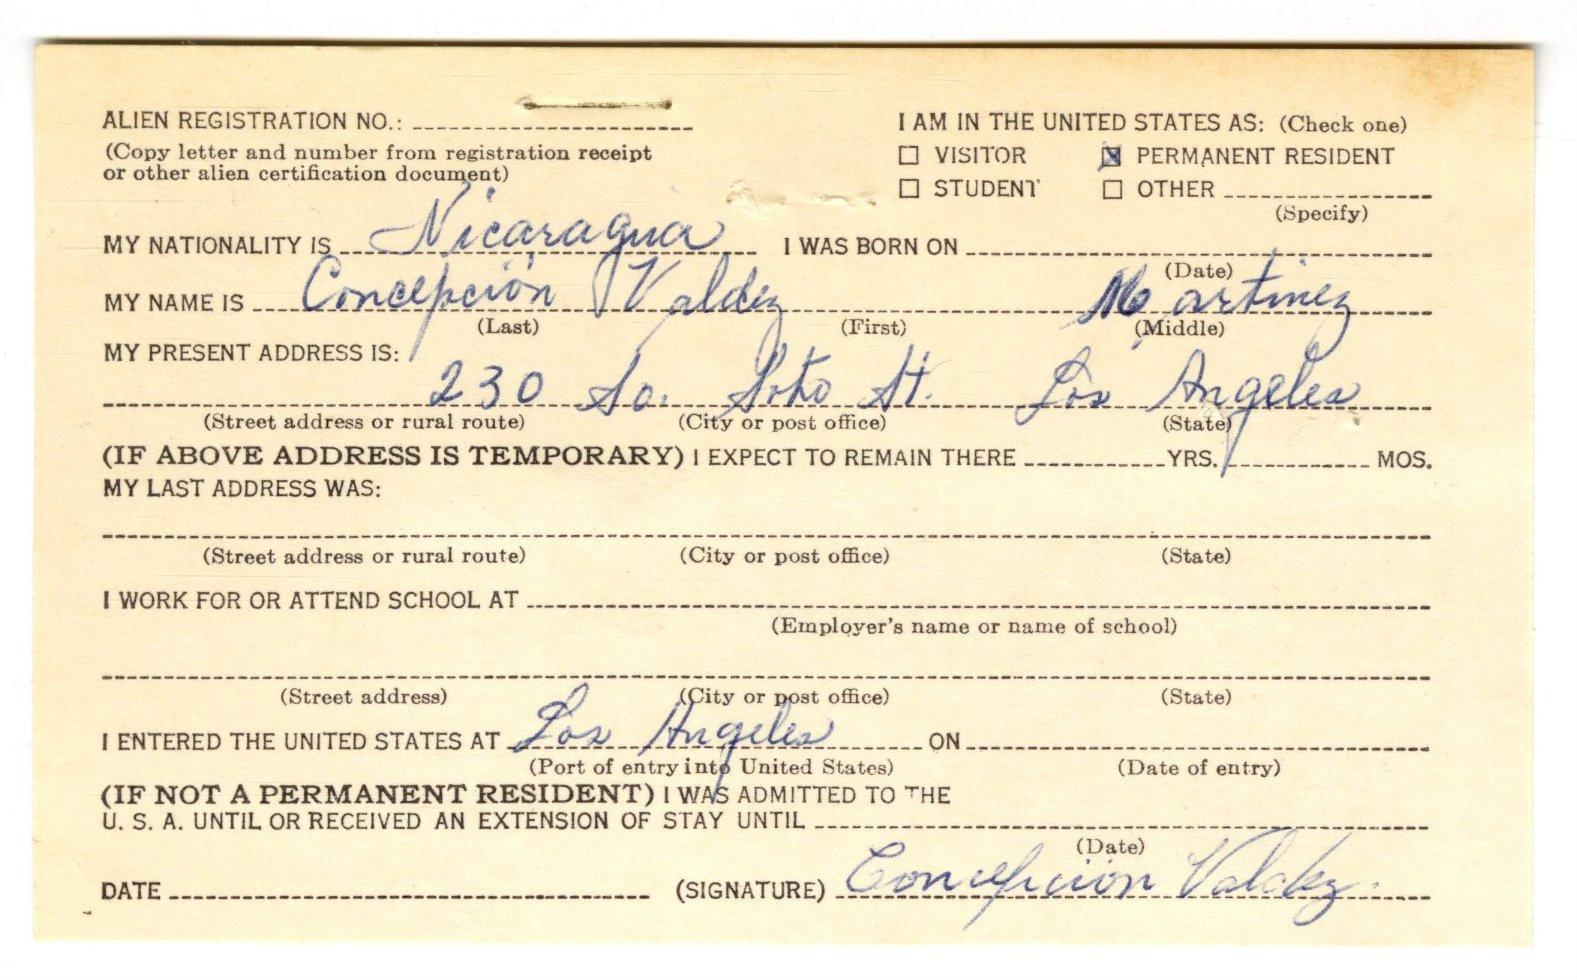 ALIEN REGISTRATION NO.:
(Copy letter and number from registration receipt
or other alien certification document)
I AM IN THE UNITED STATES AS: (Check one)
☐ VISITOR ☒ PERMANENT RESIDENT
☐ STUDENT ☐ OTHER
(Specify)
MY NATIONALITY IS Nicaragua I WAS BORN ON
(Date)
MY NAME IS Concepción Valdez Martinez
(Last) (First) (Middle)
MY PRESENT ADDRESS IS:
230 So. Soto St. Los Angeles
(Street address or rural route) (City or post office) (State)
(IF ABOVE ADDRESS IS TEMPORARY) I EXPECT TO REMAIN THERE YRS. MOS.
MY LAST ADDRESS WAS:
(Street address or rural route) (City or post office) (State)
I WORK FOR OR ATTEND SCHOOL AT
(Employer's name or name of school)
(Street address) (City or post office) (State)
I ENTERED THE UNITED STATES AT Los Angeles ON
(Port of entry into United States) (Date of entry)
(IF NOT A PERMANENT RESIDENT) I WAS ADMITTED TO THE
U. S. A. UNTIL OR RECEIVED AN EXTENSION OF STAY UNTIL
(Date)
DATE (SIGNATURE) Concepción Valdez.